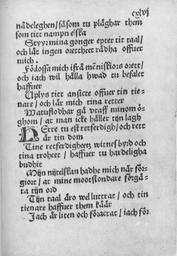 cxlvj
nådeleghen/såsom tu plåghar them
som titt nampn elska
Styr mina gonger epter titt taal/
och låt ingen orettheet rådha offuer
mich.
Förlossa mich ifrå menniskiors orett/
och iach wil hålla hwad tu befalet
haffuer
Vplys titt ansicte offuer tin tie-
nare/och lär mich tina retter
Watuflodhar gå vtaff minom ö-
ghom/at man icke håller tijn lagh
HErre tu est retferdigh/och rett
är tin dom
Tine retferdigheetz witnesbyrd och
tina troheet/haffuer tu hardeligha
budhit
Mijn nijtelskan hadhe mich när för-
giort/at mine mootstondare förgä-
ta tijn ord
Tijn taal äro wel luttrat/och tin
tienare haffuer them käär
Jach är liten och föractat/iach för-